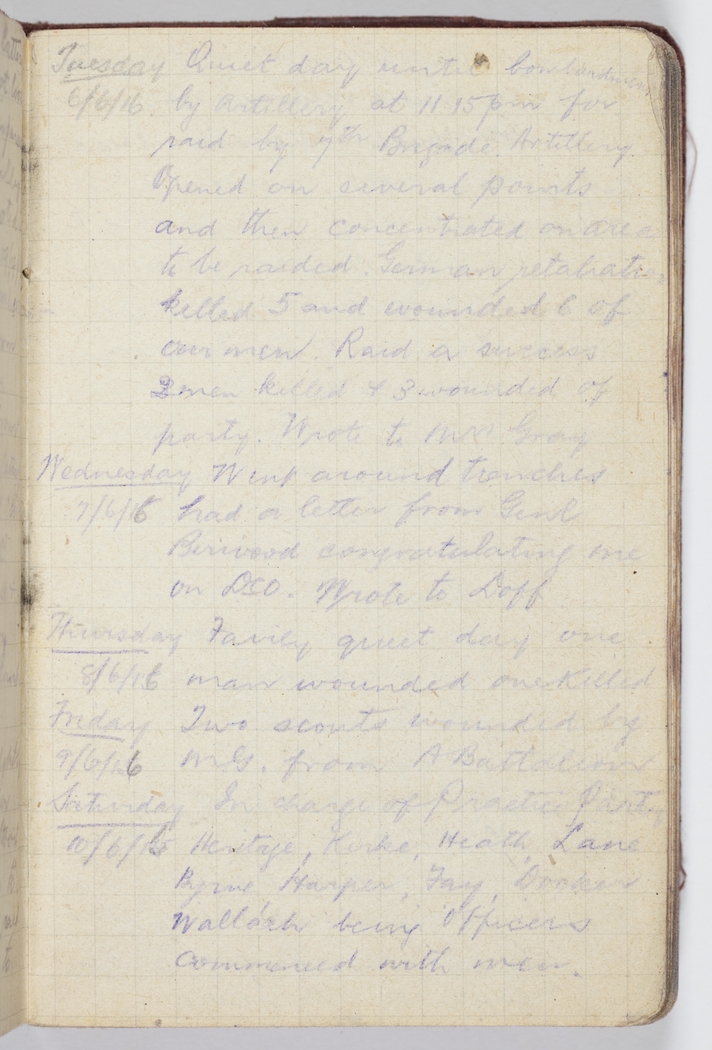 Tuesday Quiet day until bombardment
6/6/16. by Artillery at 11.15 pm for
raid by 7th Brigade. Artillery
Opened on several points
and then concentrated on area
to be raided. German retaliation
killed 5 and wounded 6 of
our men. Raid a success
2 men killed & 3 wounded of
party. Wrote to Mrs Gray
Wednesday Went around trenches
7/6/16 had a letter from Genl
Birdwood congratulating me
on DSO. Wrote to Doff
Thursday Fairly quiet day one
8/6/16 man wounded one killed
Friday Two scouts wounded by
9/6/16 M.G. from A Battalion
Saturday In charge of Practice Party
10/6/16 Heritage, Kirke, Heath, Lane
Byrne Harper, Fay, Dooker
Wallach being Officers
Commenced with men.